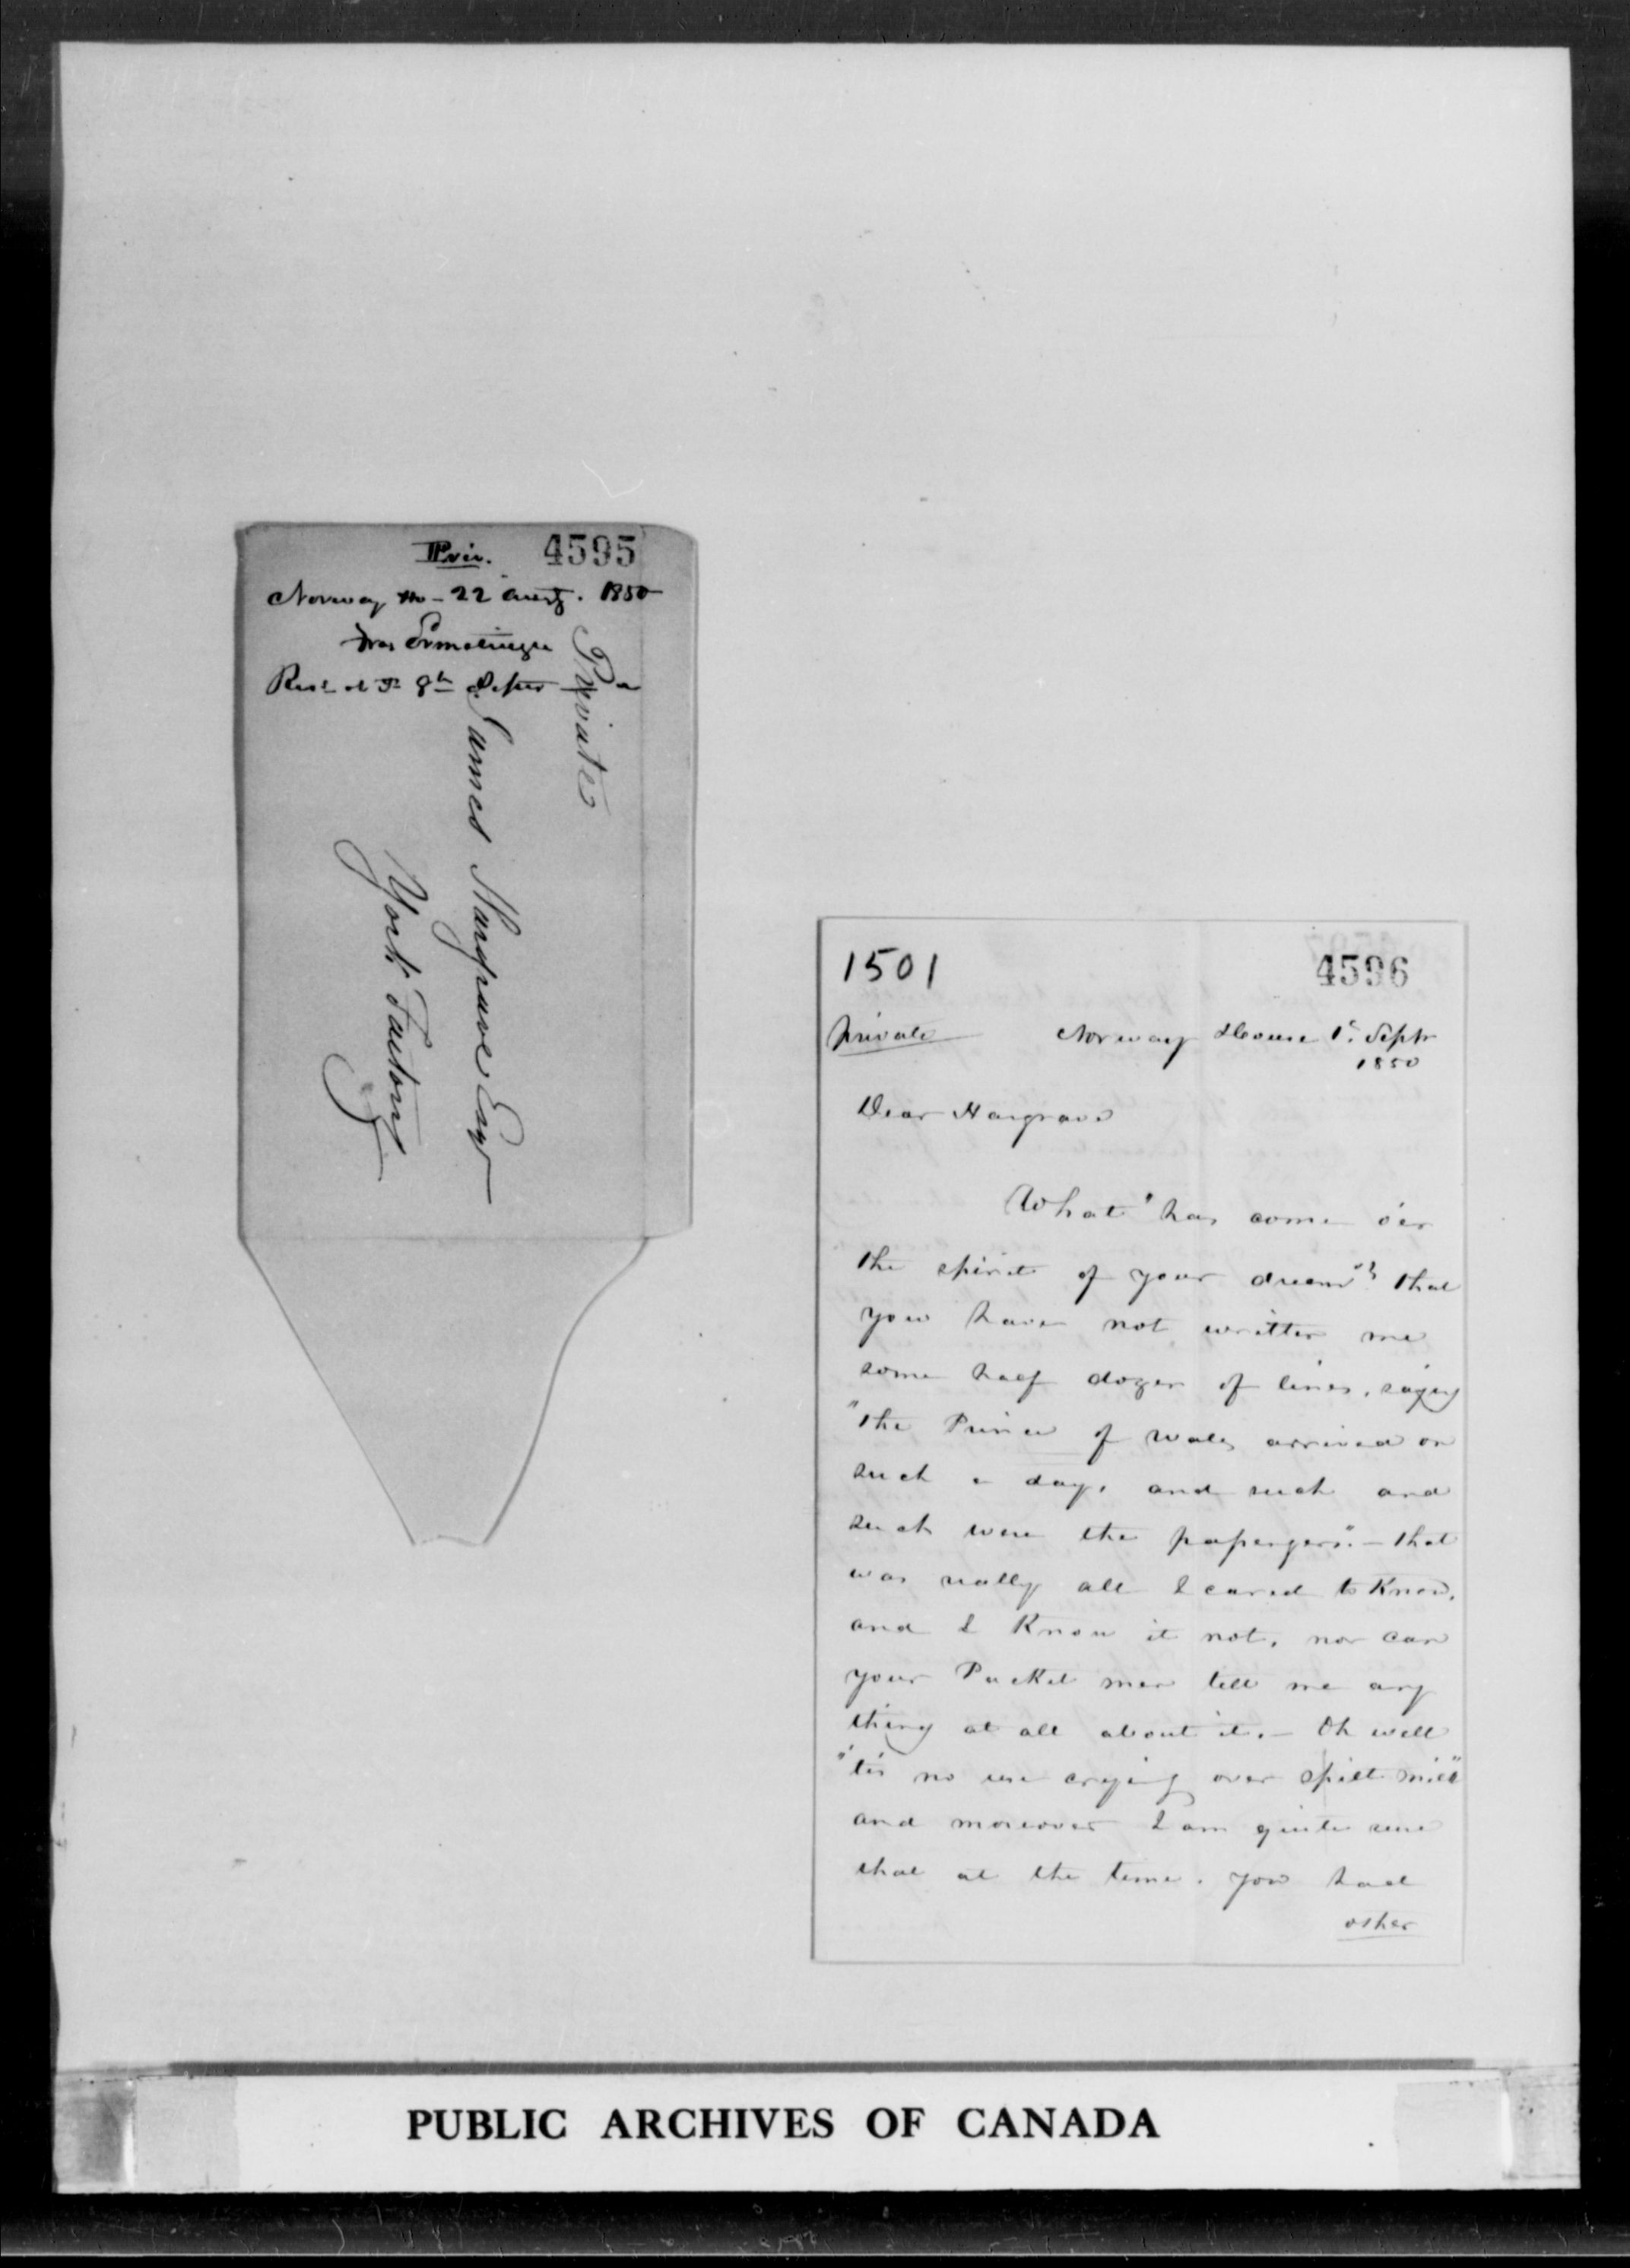 Priv. 4595
Norway Ho - 22 Augt. 1850
Fras Ermatinger
Recd at YF 8th Septr
Private
James Hargrave Esqr
York Factory
1501
4596
Private Norway House 1st Septr
1850
Dear Hargrave
What "has come o'er
the spirit of your dream"? that
you have not written me
some half dozen of lines, saying
"the Prince of Wales arrived on
such a day, and such and
such were the passengers" - that
was really all I cared to Know,
and I Know it not, nor can
your Packet men tell me any
thing at all about it. - Oh well
"'tis no use crying over spilt milk"
and moreover I am quite sure
that at the time, you had
other
PUBLIC ARCHIVES OF CANADA